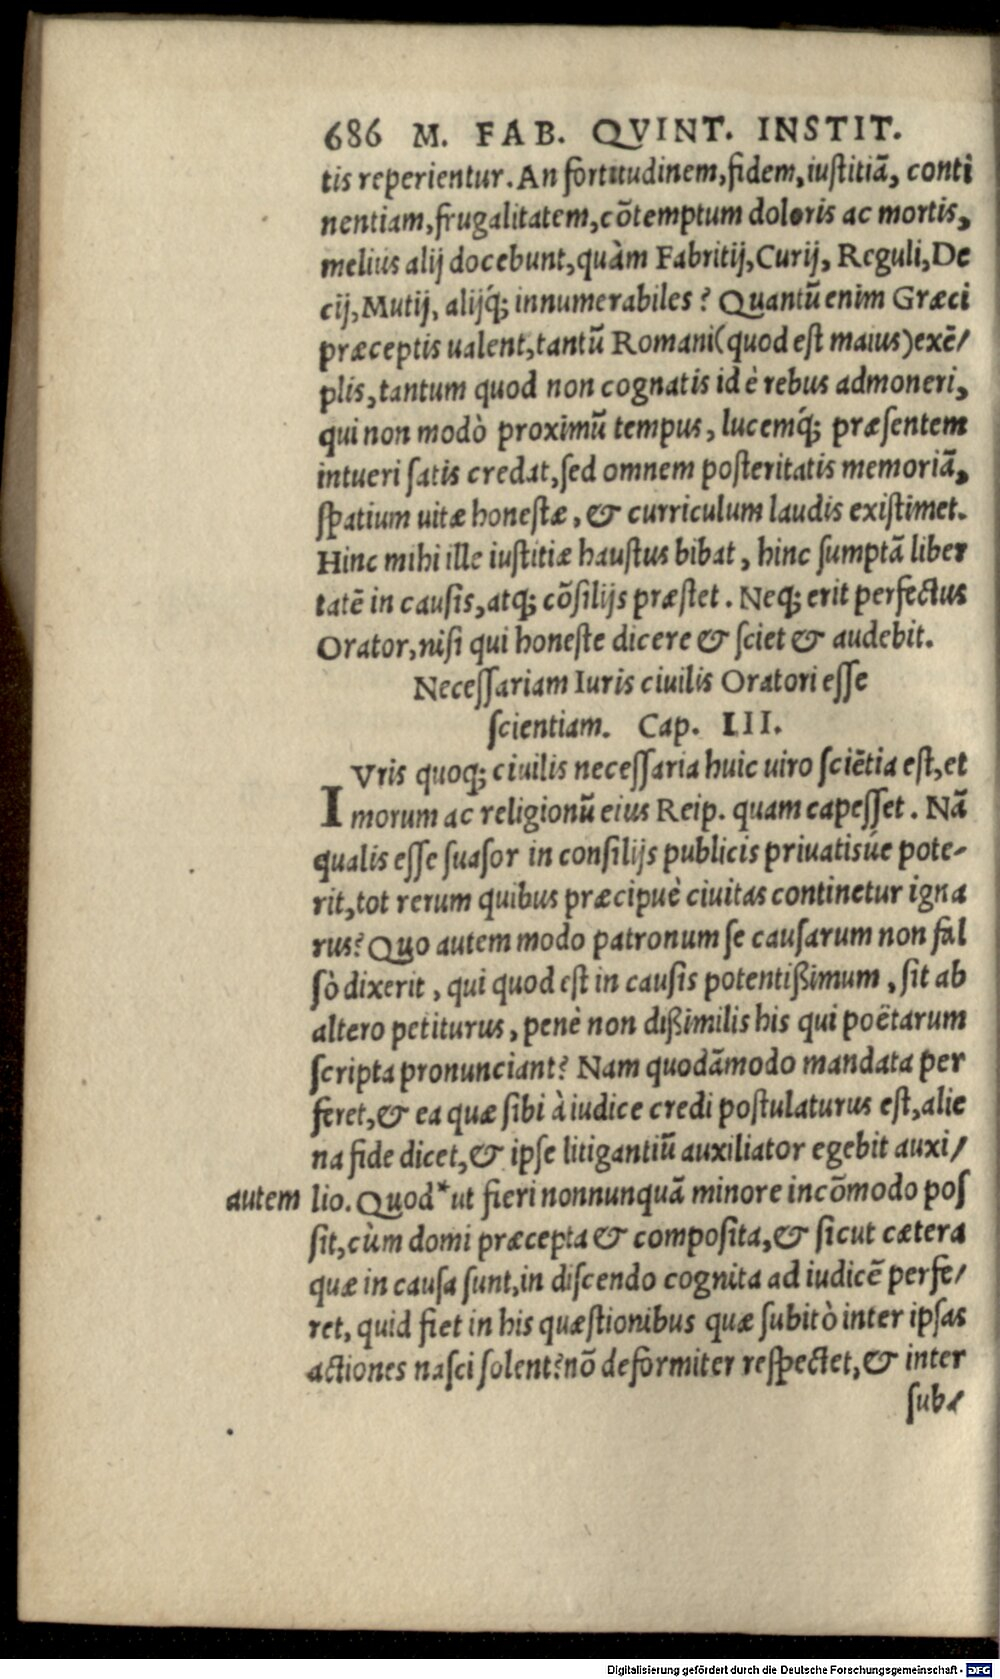 686 M. FAB. QVINT. INSTIT.
tis reperientur. An fortitudinem, fidem, iustitiã, conti
nentiam, frugalitatem, cõtemptum doloris ac mortis,
melius alij docebunt, quàm Fabritij, Curij, Reguli, De
cij, Mutij, alijq́; innumerabiles? Quantũ enim Græci
præceptis ualent, tantũ Romani (quod est maius) exẽ/
plis, tantum quod non cognatis id è rebus admoneri,
qui non modò proximũ tempus, lucemq́; præsentem
intueri satis credat, sed omnem posteritatis memoriã,
spatium uitæ honestæ, & curriculum laudis existimet.
Hinc mihi ille iustitiæ haustus bibat, hinc sumptã liber
tatẽ in causis, atq; cõsilijs præstet. Neq; erit perfectus
Orator, nisi qui honeste dicere & sciet & audebit.
Necessariam Iuris ciuilis Oratori esse
scientiam. Cap. III.
IVris quoq; ciuilis necessaria huic uiro sciẽtia est, et
morum ac religionũ eius Reip. quam capesset. Nã
qualis esse suasor in consilijs publicis priuatisúe pote-
rit, tot rerum quibus præcipuè ciuitas continetur igna
rus? Quo autem modo patronum se causarum non fal
sò dixerit, qui quod est in causis potentißimum, sit ab
altero petiturus, penè non dißimilis his qui poëtarum
scripta pronunciant? Nam quodãmodo mandata per
feret, & ea quæ sibi à iudice credi postulaturus est, alie
na fide dicet, & ipse litigantiũ auxiliator egebit auxi/
autem lio. Quod* ut fieri nonnunquã minore incõmodo pos
sit, cùm domi præcepta & composita, & sicut cætera
quæ in causa sunt, in discendo cognita ad iudicẽ perfe/
ret, quid fiet in his quæstionibus quæ subitò inter ipsas
actiones nasci solent? nõ deformiter respectet, & inter
sub/
Digitalisierung gefördert durch die Deutsche Forschungsgemeinschaft - DFG